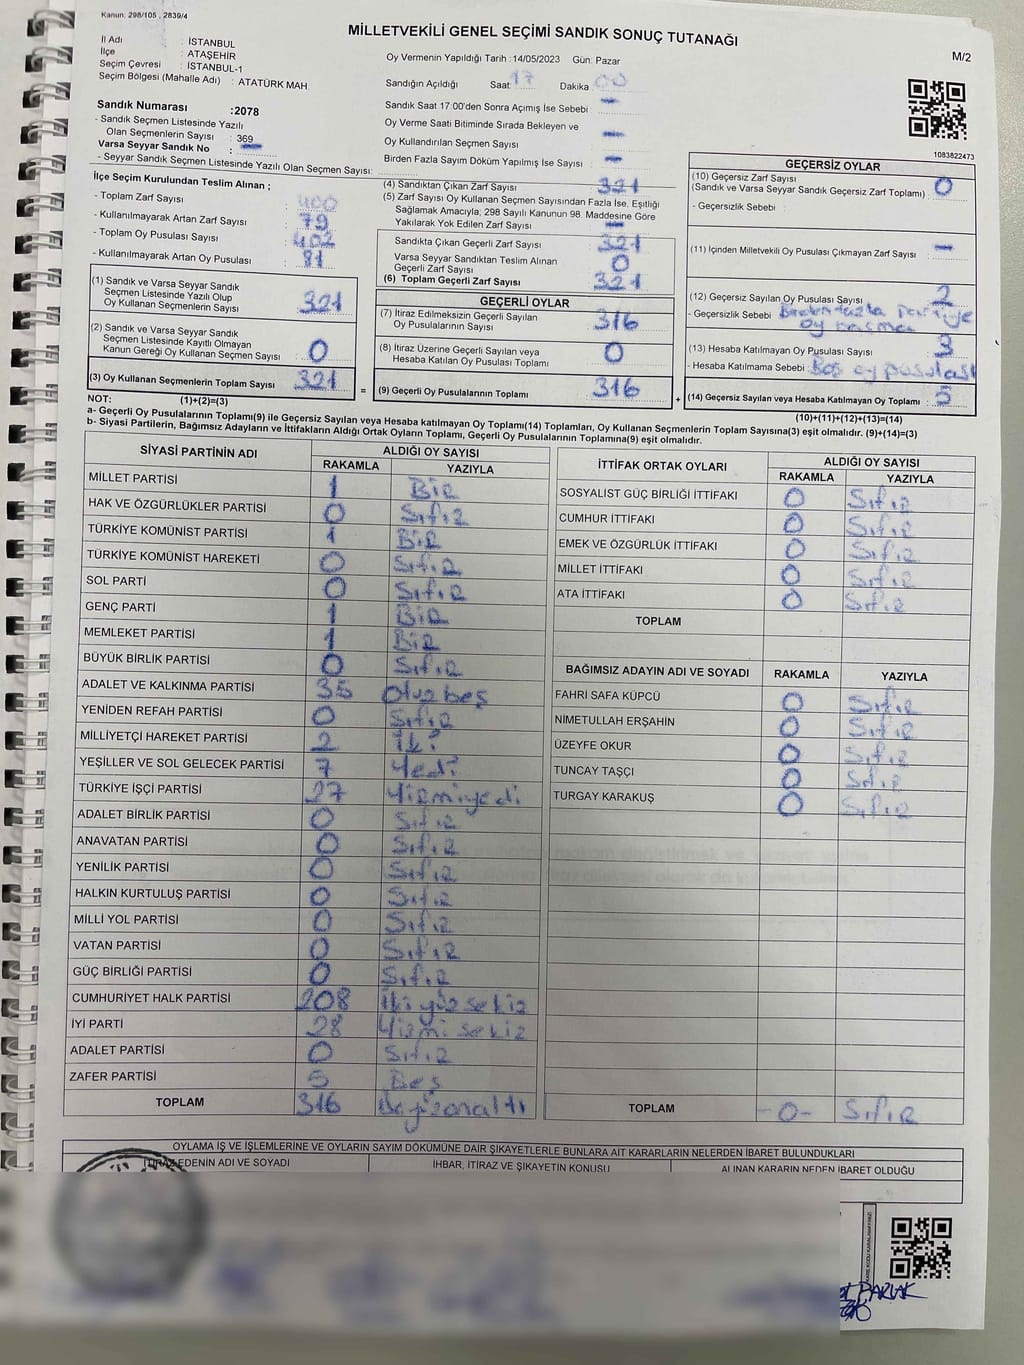 Kanun: 298/105 , 2839/4
MİLLETVEKİLİ GENEL SEÇİMİ SANDIK SONUÇ TUTANAĞI
M/2
İl Adı : İSTANBUL
İlçe : ATAŞEHİR
Seçim Çevresi : İSTANBUL-1
Seçim Bölgesi (Mahalle Adı) : ATATÜRK MAH
Sandık Numarası :2078
- Sandık Seçmen Listesinde Yazılı
Olan Seçmenlerin Sayısı : 369
Varsa Seyyar Sandık No : -
- Seyyar Sandık Seçmen Listesinde Yazılı Olan Seçmen Sayısı:
Oy Vermenin Yapıldığı Tarih :14/05/2023 Gün: Pazar
Sandığın Açıldığı Saat 17 Dakika 00
Sandık Saat 17:00'den Sonra Açımış İse Sebebi : -
Oy Verme Saati Bitiminde Sırada Bekleyen ve
Oy Kullandırılan Seçmen Sayısı : -
Birden Fazla Sayım Döküm Yapılmış İse Sayısı : -
1083822473
İlçe Seçim Kurulundan Teslim Alınan ;
- Toplam Zarf Sayısı : 400
- Kullanılmayarak Artan Zarf Sayısı : 79
- Toplam Oy Pusulası Sayısı : 402
- Kullanılmayarak Artan Oy Pusulası : 81
(1) Sandık ve Varsa Seyyar Sandık
Seçmen Listesinde Yazılı Olup
Oy Kullanan Seçmenlerin Sayısı : 321
(2) Sandık ve Varsa Seyyar Sandık
Seçmen Listesinde Kayıtlı Olmayan
Kanun Gereği Oy Kullanan Seçmen Sayısı : 0
(3) Oy Kullanan Seçmenlerin Toplam Sayısı : 321
(4) Sandıktan Çıkan Zarf Sayısı : 321
(5) Zarf Sayısı Oy Kullanan Seçmen Sayısından Fazla İse, Eşitliği
Sağlamak Amacıyla; 298 Sayılı Kanunun 98. Maddesine Göre
Yakılarak Yok Edilen Zarf Sayısı : -
Sandıkta Çıkan Geçerli Zarf Sayısı : 321
Varsa Seyyar Sandıktan Teslim Alınan
Geçerli Zarf Sayısı : 0
(6) Toplam Geçerli Zarf Sayısı : 321
GEÇERLİ OYLAR
(7) İtiraz Edilmeksizin Geçerli Sayılan
Oy Pusulalarının Sayısı : 316
(8) İtiraz Üzerine Geçerli Sayılan veya
Hesaba Katılan Oy Pusulaları Toplamı : 0
= (9) Geçerli Oy Pusulalarının Toplamı : 316 +
GEÇERSİZ OYLAR
(10) Geçersiz Zarf Sayısı : 0
(Sandık ve Varsa Seyyar Sandık Geçersiz Zarf Toplamı)
- Geçersizlik Sebebi :
(11) İçinden Milletvekili Oy Pusulası Çıkmayan Zarf Sayısı : -
(12) Geçersiz Sayılan Oy Pusulası Sayısı : 2
- Geçersizlik Sebebi : Birden fazla partiye
oy basması
(13) Hesaba Katılmayan Oy Pusulası Sayısı : 3
- Hesaba Katılmama Sebebi : Boş oy pusulası
(14) Geçersiz Sayılan veya Hesaba Katılmayan Oy Toplamı : 5
NOT: (1)+(2)=(3)
(10)+(11)+(12)+(13)=(14)
a- Geçerli Oy Pusulalarının Toplamı(9) ile Geçersiz Sayılan veya Hesaba katılmayan Oy Toplamı(14) Toplamları, Oy Kullanan Seçmenlerin Toplam Sayısına(3) eşit olmalıdır. (9)+(14)=(3)
b- Siyasi Partilerin, Bağımsız Adayların ve İttifakların Aldığı Ortak Oyların Toplamı, Geçerli Oy Pusulalarının Toplamına(9) eşit olmalıdır.
SİYASİ PARTİNİN ADI ALDIĞI OY SAYISI
RAKAMLA YAZIYLA
MİLLET PARTİSİ 1 Bir
HAK VE ÖZGÜRLÜKLER PARTİSİ 0 Sıfır
TÜRKİYE KOMÜNİST PARTİSİ 1 Bir
TÜRKİYE KOMÜNİST HAREKETİ 0 Sıfır
SOL PARTİ 0 Sıfır
GENÇ PARTİ 1 Bir
MEMLEKET PARTİSİ 1 Bir
BÜYÜK BİRLİK PARTİSİ 0 Sıfır
ADALET VE KALKINMA PARTİSİ 35 Otuz beş
YENİDEN REFAH PARTİSİ 0 Sıfır
MİLLİYETÇİ HAREKET PARTİSİ 2 İki
YEŞİLLER VE SOL GELECEK PARTİSİ 7 Yedi
TÜRKİYE İŞÇİ PARTİSİ 27 Yirmiyedi
ADALET BİRLİK PARTİSİ 0 Sıfır
ANAVATAN PARTİSİ 0 Sıfır
YENİLİK PARTİSİ 0 Sıfır
HALKIN KURTULUŞ PARTİSİ 0 Sıfır
MİLLİ YOL PARTİSİ 0 Sıfır
VATAN PARTİSİ 0 Sıfır
GÜÇ BİRLİĞİ PARTİSİ 0 Sıfır
CUMHURİYET HALK PARTİSİ 208 İki yüz sekiz
İYİ PARTİ 28 Yirmi sekiz
ADALET PARTİSİ 0 Sıfır
ZAFER PARTİSİ 5 Beş
TOPLAM 316 Üçyüzonaltı
İTTİFAK ORTAK OYLARI ALDIĞI OY SAYISI
RAKAMLA YAZIYLA
SOSYALIST GÜÇ BİRLİĞİ İTTİFAKI 0 Sıfır
CUMHUR İTTİFAKI 0 Sıfır
EMEK VE ÖZGÜRLÜK İTTİFAKI 0 Sıfır
MİLLET İTTİFAKI 0 Sıfır
ATA İTTİFAKI 0 Sıfır
TOPLAM
BAĞIMSIZ ADAYIN ADI VE SOYADI RAKAMLA YAZIYLA
FAHRİ SAFA KÜPCÜ 0 Sıfır
NİMETULLAH ERŞAHİN 0 Sıfır
ÜZEYFE OKUR 0 Sıfır
TUNCAY TAŞÇI 0 Sıfır
TURGAY KARAKUŞ 0 Sıfır
TOPLAM -0- Sıfır
OYLAMA İŞ VE İŞLEMLERİNE VE OYLARIN SAYIM DÖKÜMÜNE DAİR ŞİKAYETLERLE BUNLARA AİT KARARLARIN NELERDEN İBARET BULUNDUKLARI
İTİRAZ EDENİN ADI VE SOYADI İHBAR, İTİRAZ VE ŞİKAYETİN KONUSU ALINAN KARARIN NEDEN İBARET OLDUĞU
PARLAK